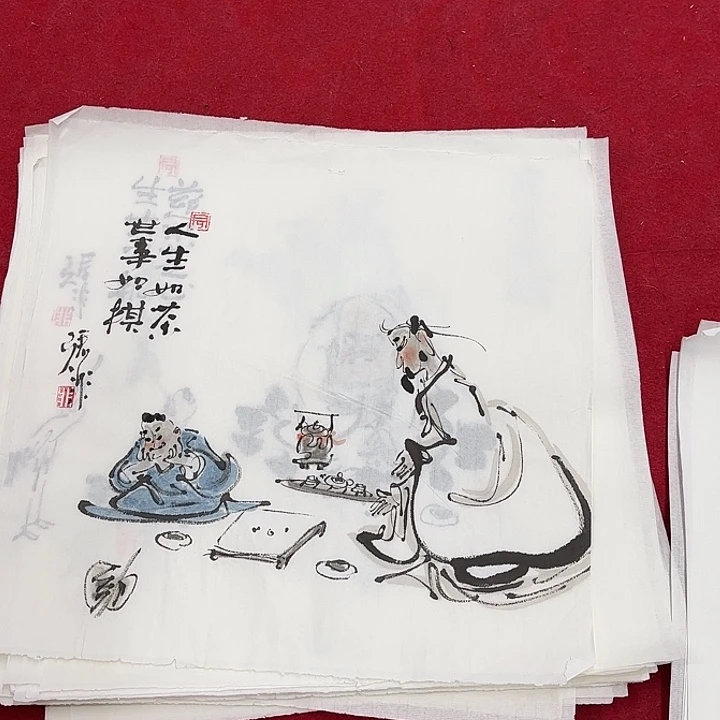 人生如茶
世事如棋
張非